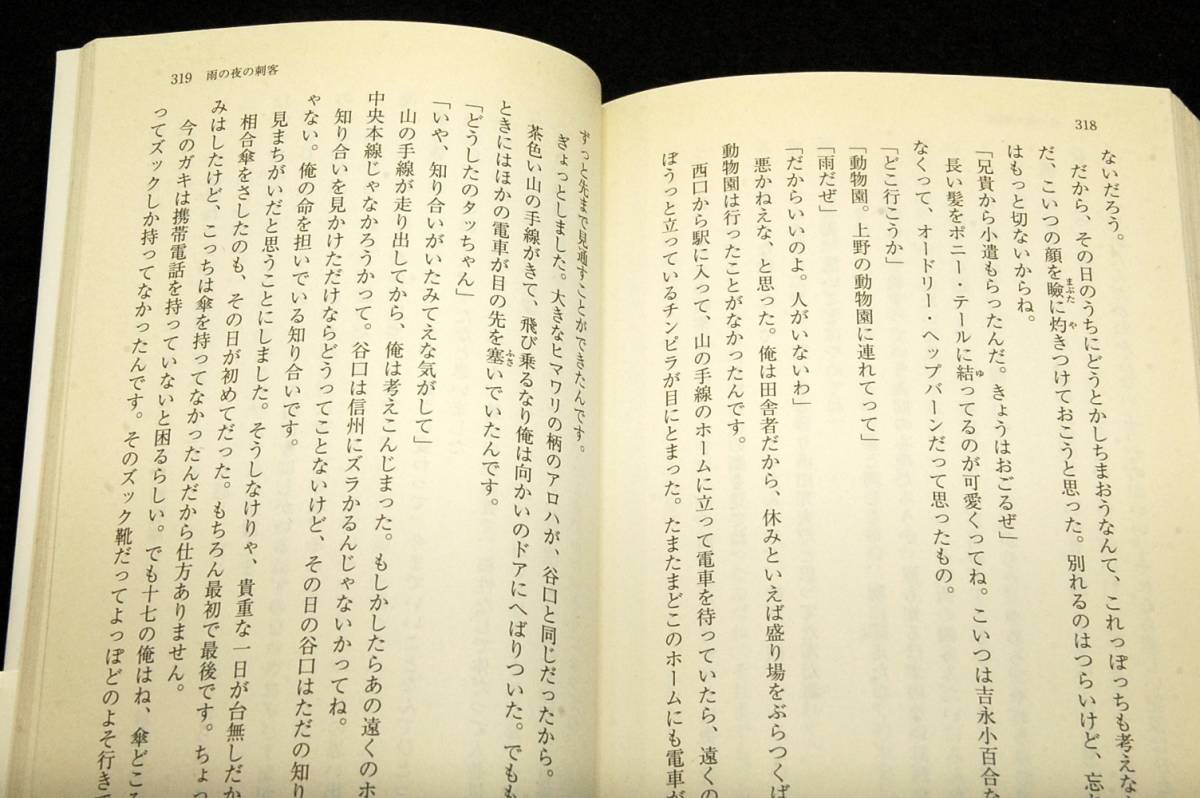 318
ないだろう。
だから、その日のうちにどうとかしちまおうなんて、これっぽっちも考えな
だ、こいつの顔を瞼に灼きつけておこうと思った。別れるのはつらいけど、忘
はもっと切ないからね。
「兄貴から小遣もらったんだ。きょうはおごるぜ」
長い髪をポニー・テールに結ってるのが可愛くってね。こいつは吉永小百合な
なくって、オードリー・ヘップバーンだって思ったもの。
「どこ行こうか」
「動物園。上野の動物園に連れてって」
「雨だぜ」
「だからいいのよ。人がいないわ」
悪かねえな、と思った。俺は田舎者だから、休みといえば盛り場をぶらつくば
動物園は行ったことがなかったんです。
西口から駅に入って、山の手線のホームに立って電車を待っていたら、遠くの
ぼうっと立っているチンピラが目にとまった。たまたまどこのホームにも電車が
319 雨の夜の刺客
ずっと先まで見通すことができたんです。
ぎょっとしました。大きなヒマワリの柄のアロハが、谷口と同じだったから。
茶色い山の手線がきて、飛び乗るなり俺は向かいのドアにへばりついた。でも
ときにはほかの電車が目の先を塞いでいたんです。
「どうしたのタッちゃん」
「いや、知り合いがいたみてえな気がして」
山の手線が走り出してから、俺は考えこんじまった。もしかしたらあの遠くのホ
中央本線じゃなかろうかって。谷口は信州にズラかるんじゃないかってね。
知り合いを見かけただけならどうってことないけど、その日の谷口はただの知り
ゃない。俺の命を担いでいる知り合いです。
見まちがいだと思うことにしました。そうしなけりゃ、貴重な一日が台無しだか
相合傘をさしたのも、その日が初めてだった。もちろん最初で最後です。ちょっ
みはしたけど、こっちは傘を持ってなかったんだから仕方ありません。
今のガキは携帯電話を持っていないと困るらしい。でも十七の俺はね、傘どころ
ってズックしか持ってなかったんです。そのズック靴だってよっぽどのよそ行きで